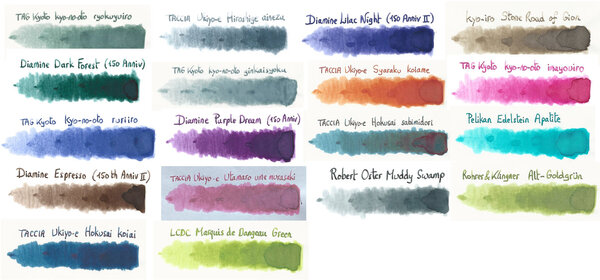 TAG Kyoto kyo-no-oto ryokuyuiro
TACCIA Ukiyo-e Hiroshige ainezu
Diamine Lilac Night (150 Anniv II)
kyo-iro Stone Road of Gion
Diamine Dark Forest (150 Anniv)
TAG Kyoto kyo-no-oto ginkaisyoku
TACCIA Ukiyo-e Syaraku kolame
TAG Kyoto kyo-no-oto imayouiro
TAG Kyoto kyo-no-oto ruriiro
Diamine Purple Dream (150 Anniv)
TACCIA Ukiyo-e Hokusai sabimidori
Pelikan Edelstein Apatite
Diamine Espresso (150th Anniv II)
TACCIA Ukiyo-e Utamaro ume murasaki
Robert Oster Muddy Swamp
Rohrer & Klingner Alt-Goldgrün
TACCIA Ukiyo-e Hokusai koiai
LCDC Marquis de Dangeau Green